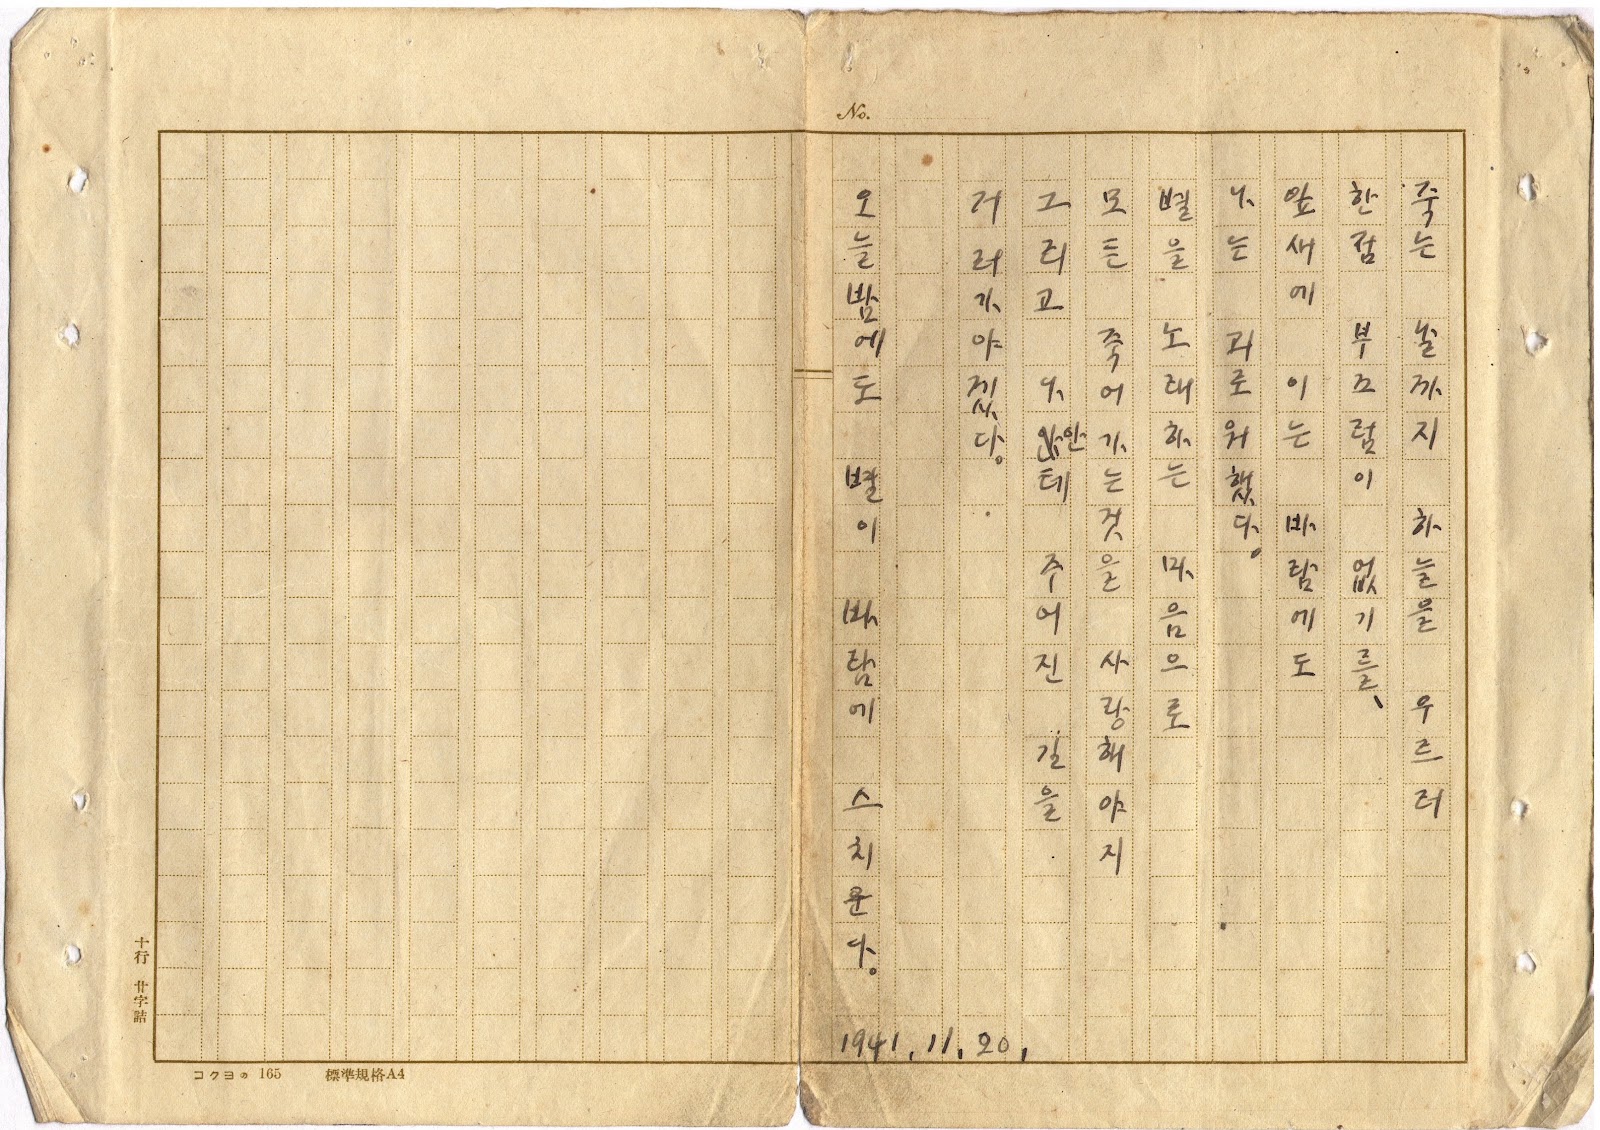 No.
죽는 날까지 하늘을 우르러
한점 부끄럼이 없기를、
잎새에 이는 바람에도
나는 괴로워했다.
별을 노래하는 마음으로
모든 죽어가는것을 사랑해야지
그리고 나안테 주어진 길을
거러가야겠다.
오늘밤에도 별이 바람에 스치운다.
1941.11.20.
十行 廿字詰
コクヨの 165 標準規格A4